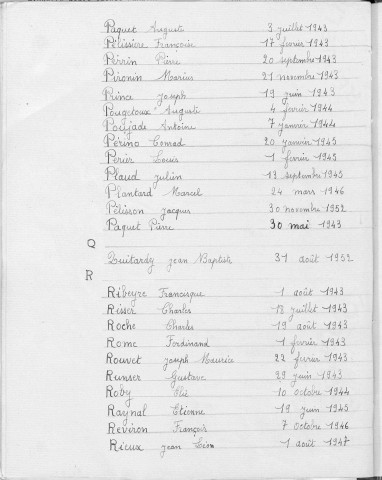 Paquet Auguste 3 juillet 1943
Pélissière Françoise 17 février 1943
Perrin Pierre 20 septembre 1943
Pironin Marius 21 novembre 1943
Prina Joseph 19 juin 1943
Pougetoux Auguste 4 février 1944
Poujade Antoine 7 janvier 1944
Périno Conrad 20 janvier 1943
Périer Louis 1 février 1943
Plaud julien 13 septembre 1943
Plantard Marcel 24 mars 1946
Pélisson Jacques 30 novembre 1952
Paquet Pierre 30 mai 1943
Q
Quitardy jean Baptiste 31 août 1952
R
Ribeyre Francisque 1 août 1943
Risser Charles 18 juillet 1943
Roche Charles 19 août 1943
Rome Ferdinand 1 février 1943
Rouvet Joseph Maurice 22 février 1943
Runser Gustave 29 juin 1943
Roby Elie 10 octobre 1944
Raynal Etienne 19 juin 1943
Reviron François 7 octobre 1946
Rieux jean Léon 1 août 1947